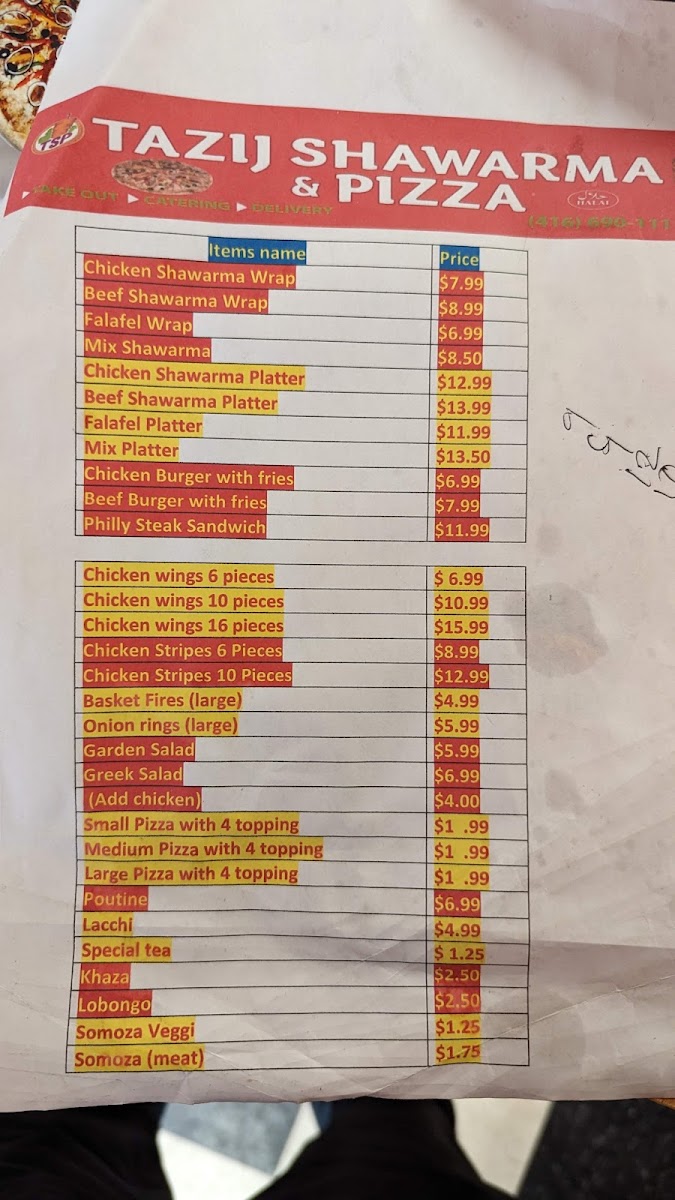 TSP
TAZIJ SHAWARMA
& PIZZA
HALAL
TAKE OUT ▶ CATERING ▶ DELIVERY
Items name Price
Chicken Shawarma Wrap $7.99
Beef Shawarma Wrap $8.99
Falafel Wrap $6.99
Mix Shawarma $8.50
Chicken Shawarma Platter $12.99
Beef Shawarma Platter $13.99
Falafel Platter $11.99
Mix Platter $13.50
Chicken Burger with fries $6.99
Beef Burger with fries $7.99
Philly Steak Sandwich $11.99
Chicken wings 6 pieces $ 6.99
Chicken wings 10 pieces $10.99
Chicken wings 16 pieces $15.99
Chicken Stripes 6 Pieces $8.99
Chicken Stripes 10 Pieces $12.99
Basket Fires (large) $4.99
Onion rings (large) $5.99
Garden Salad $5.99
Greek Salad $6.99
(Add chicken) $4.00
Small Pizza with 4 topping $1 .99
Medium Pizza with 4 topping $1 .99
Large Pizza with 4 topping $1 .99
Poutine $6.99
Lacchi $4.99
Special tea $ 1.25
Khaza $2.50
Lobongo $2.50
Somoza Veggi $1.25
Somoza (meat) $1.75